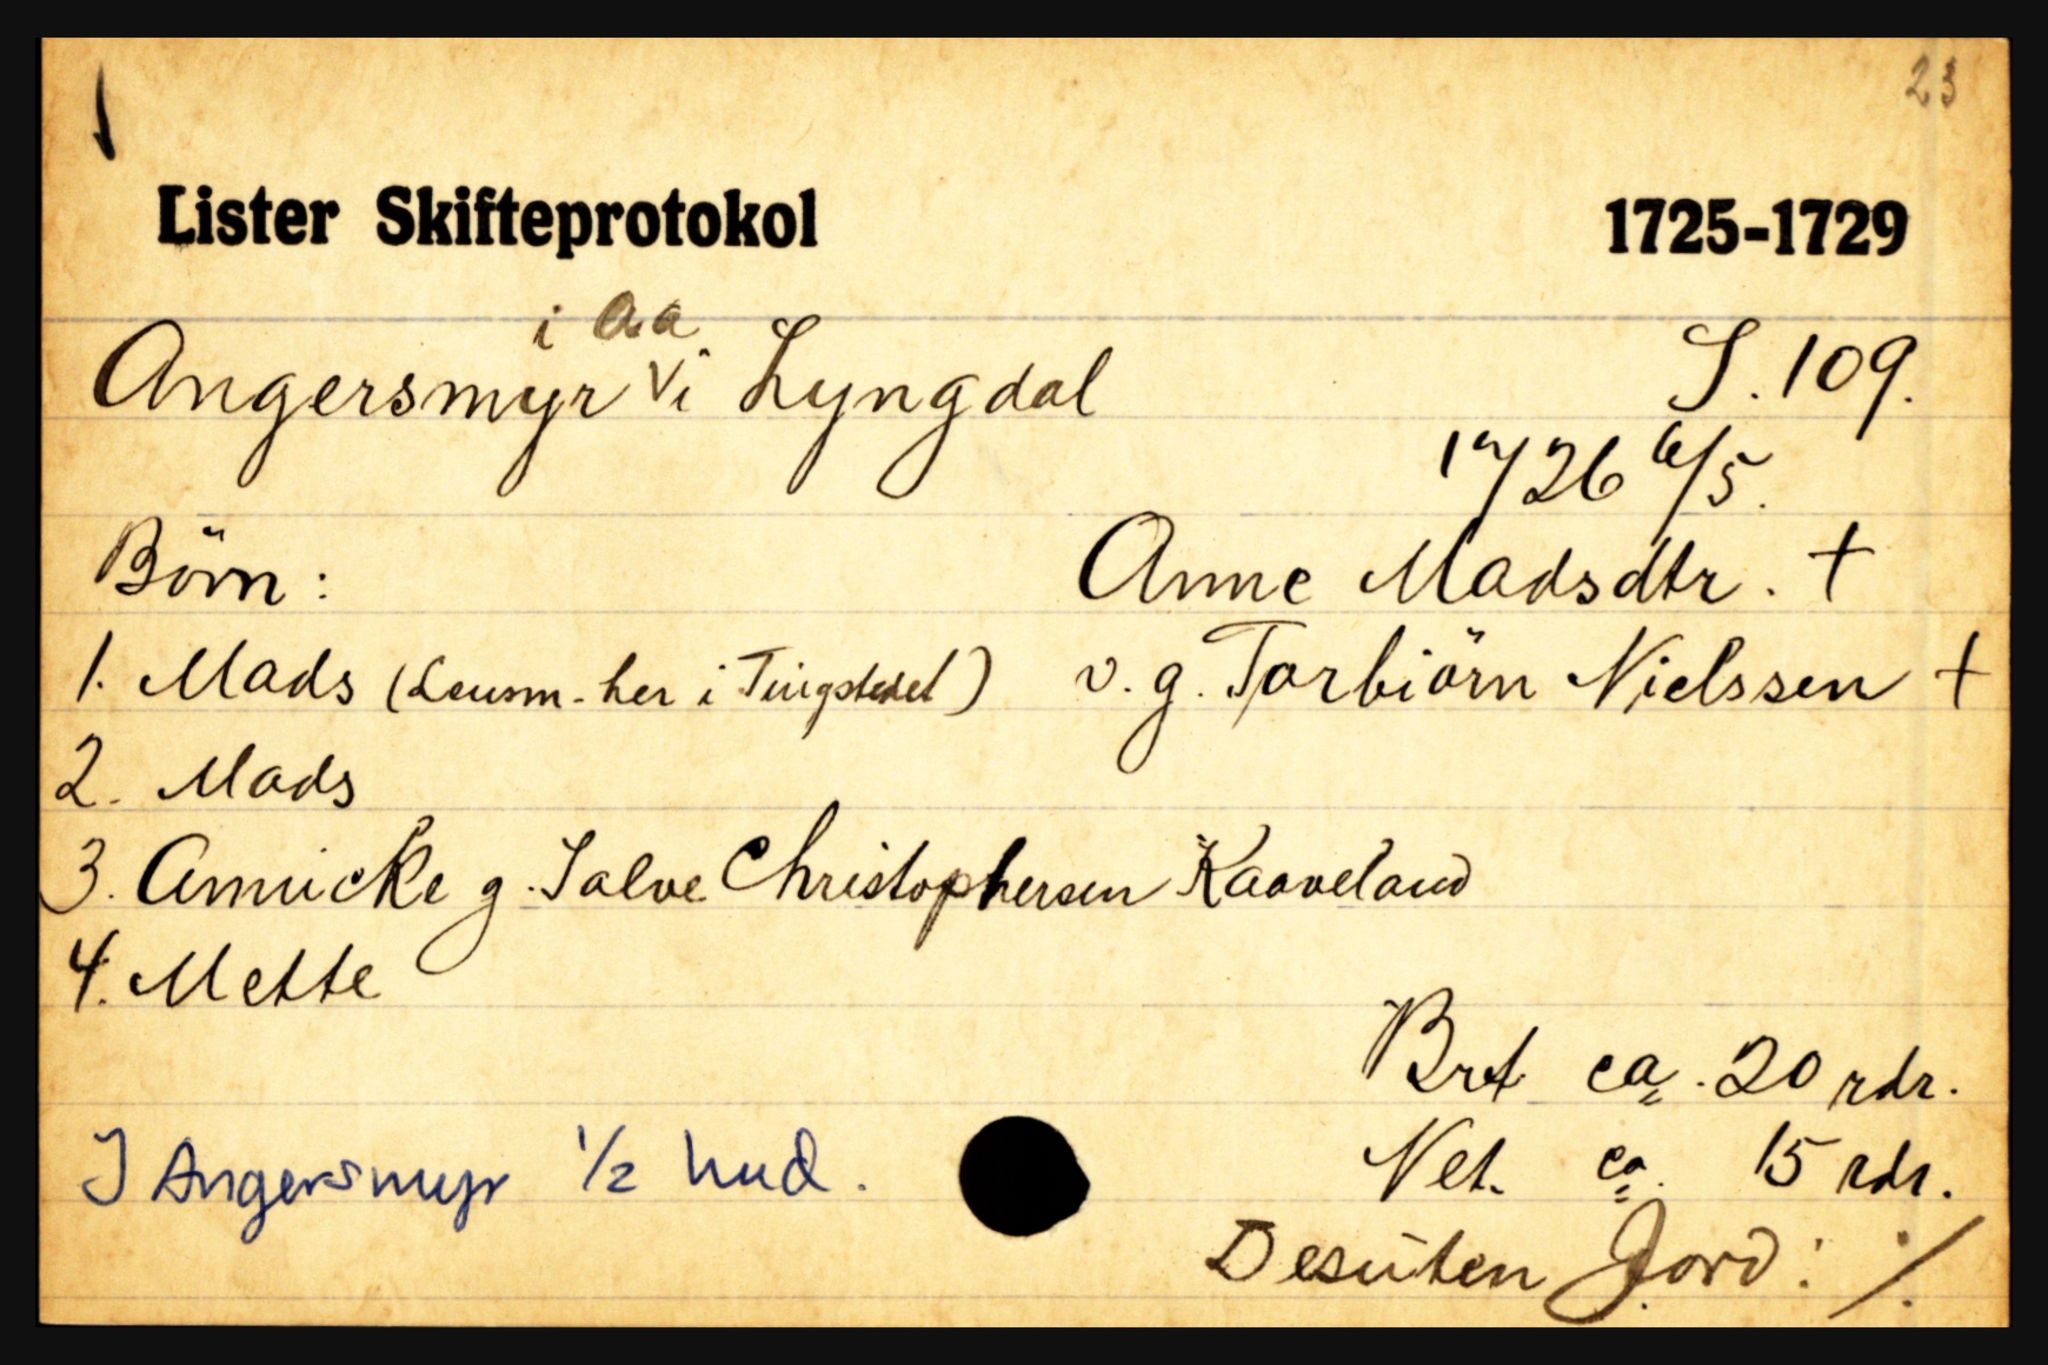 23
Lister Skifteprotokol 1725-1729
i Aa
Angersmyr V i Lyngdal S. 109.
1726 6/5.
Börn: Anne Madsdtr. +
1. Mads (Lensm. her i Tingstedet) v. g. Torbiörn Nielssen +
2. Mads
3. Annicke g. Salve Christophersen Kaaveland
4. Mette
Brt ca. 20 rdr.
I Angersmyr 1/2 hud. Net. ca. 15 rdr.
Desuten Jord: ·/.